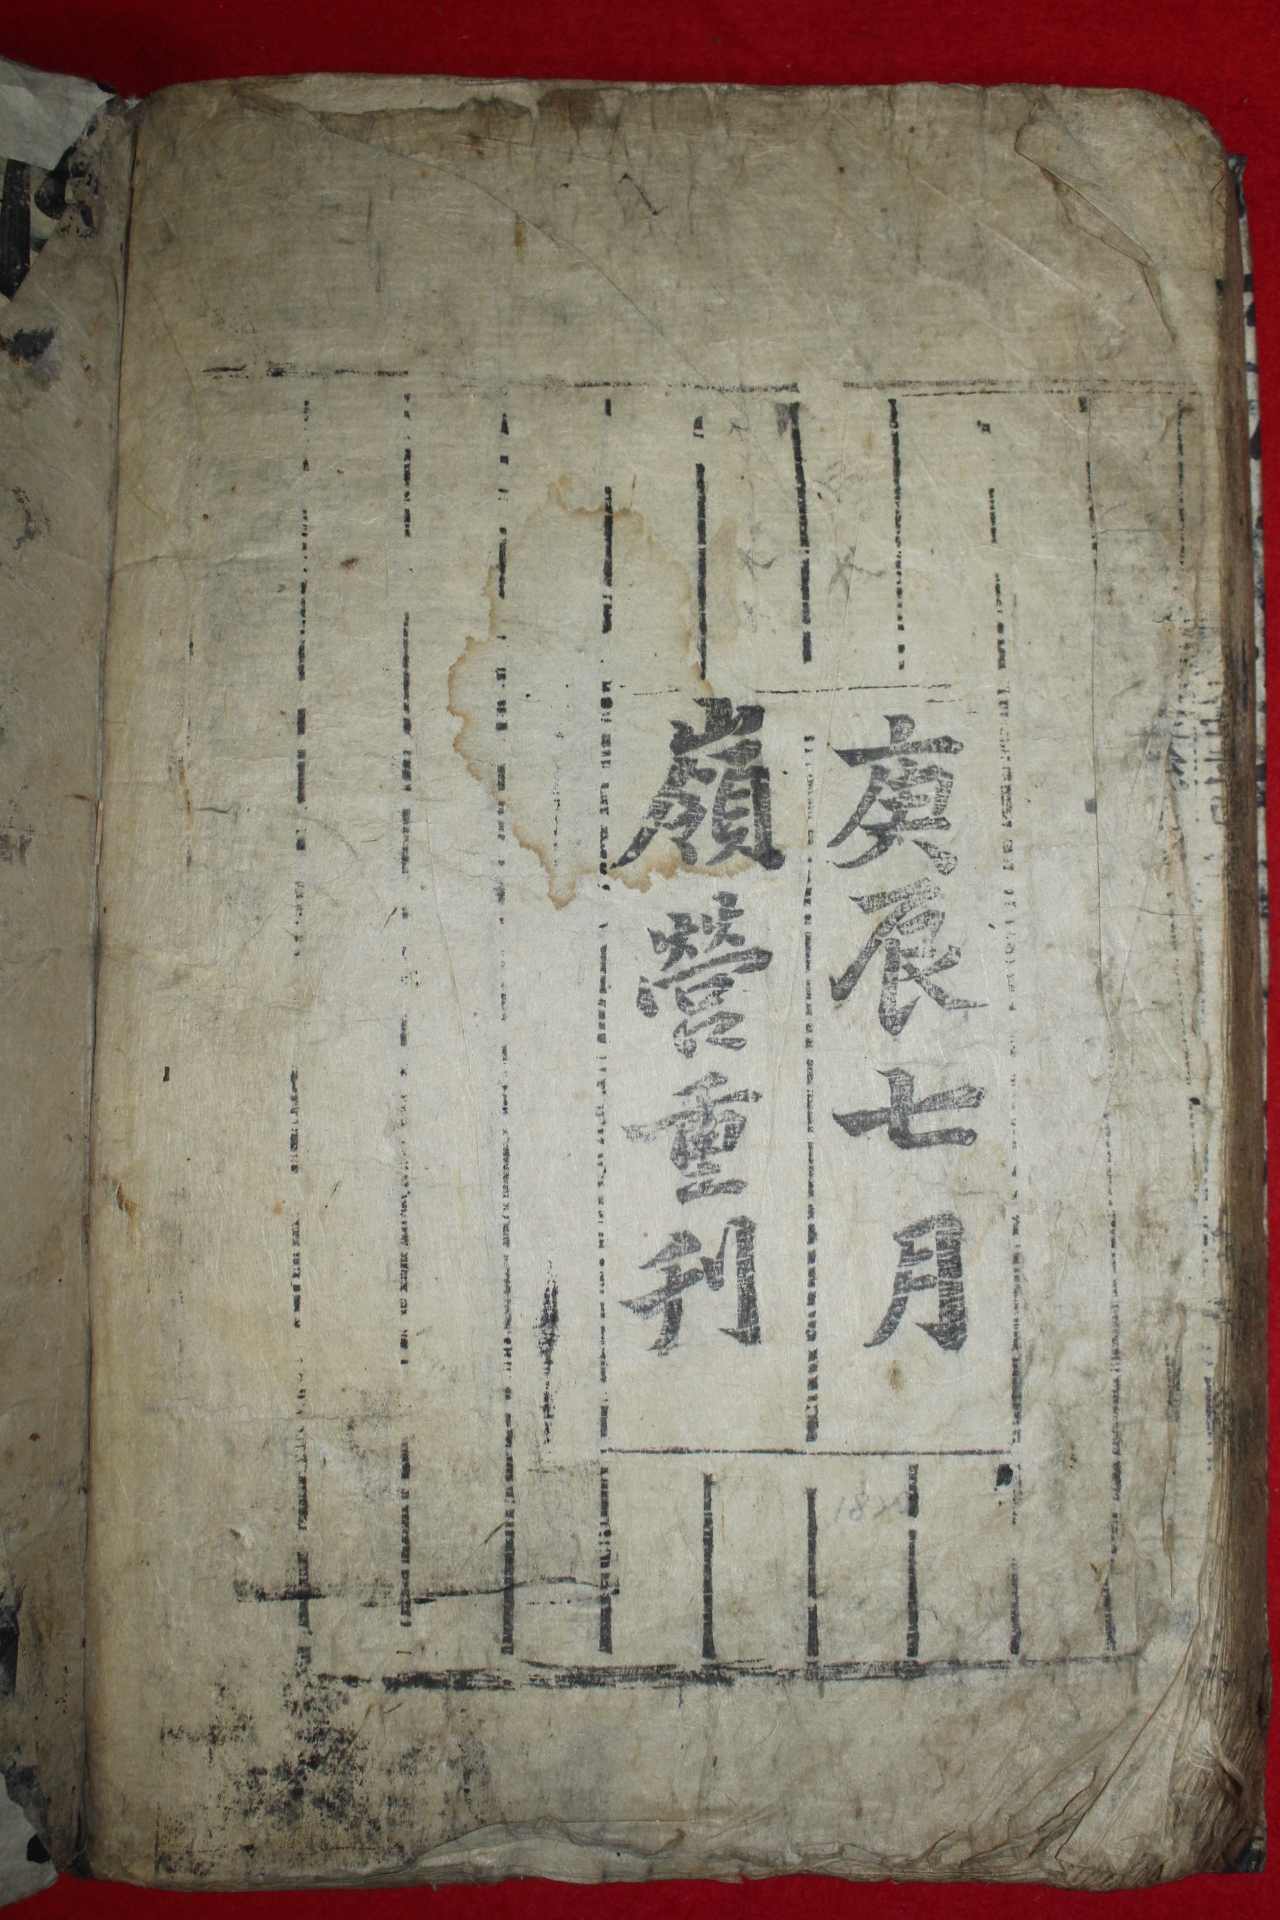 庚辰七月
嶺營重刊